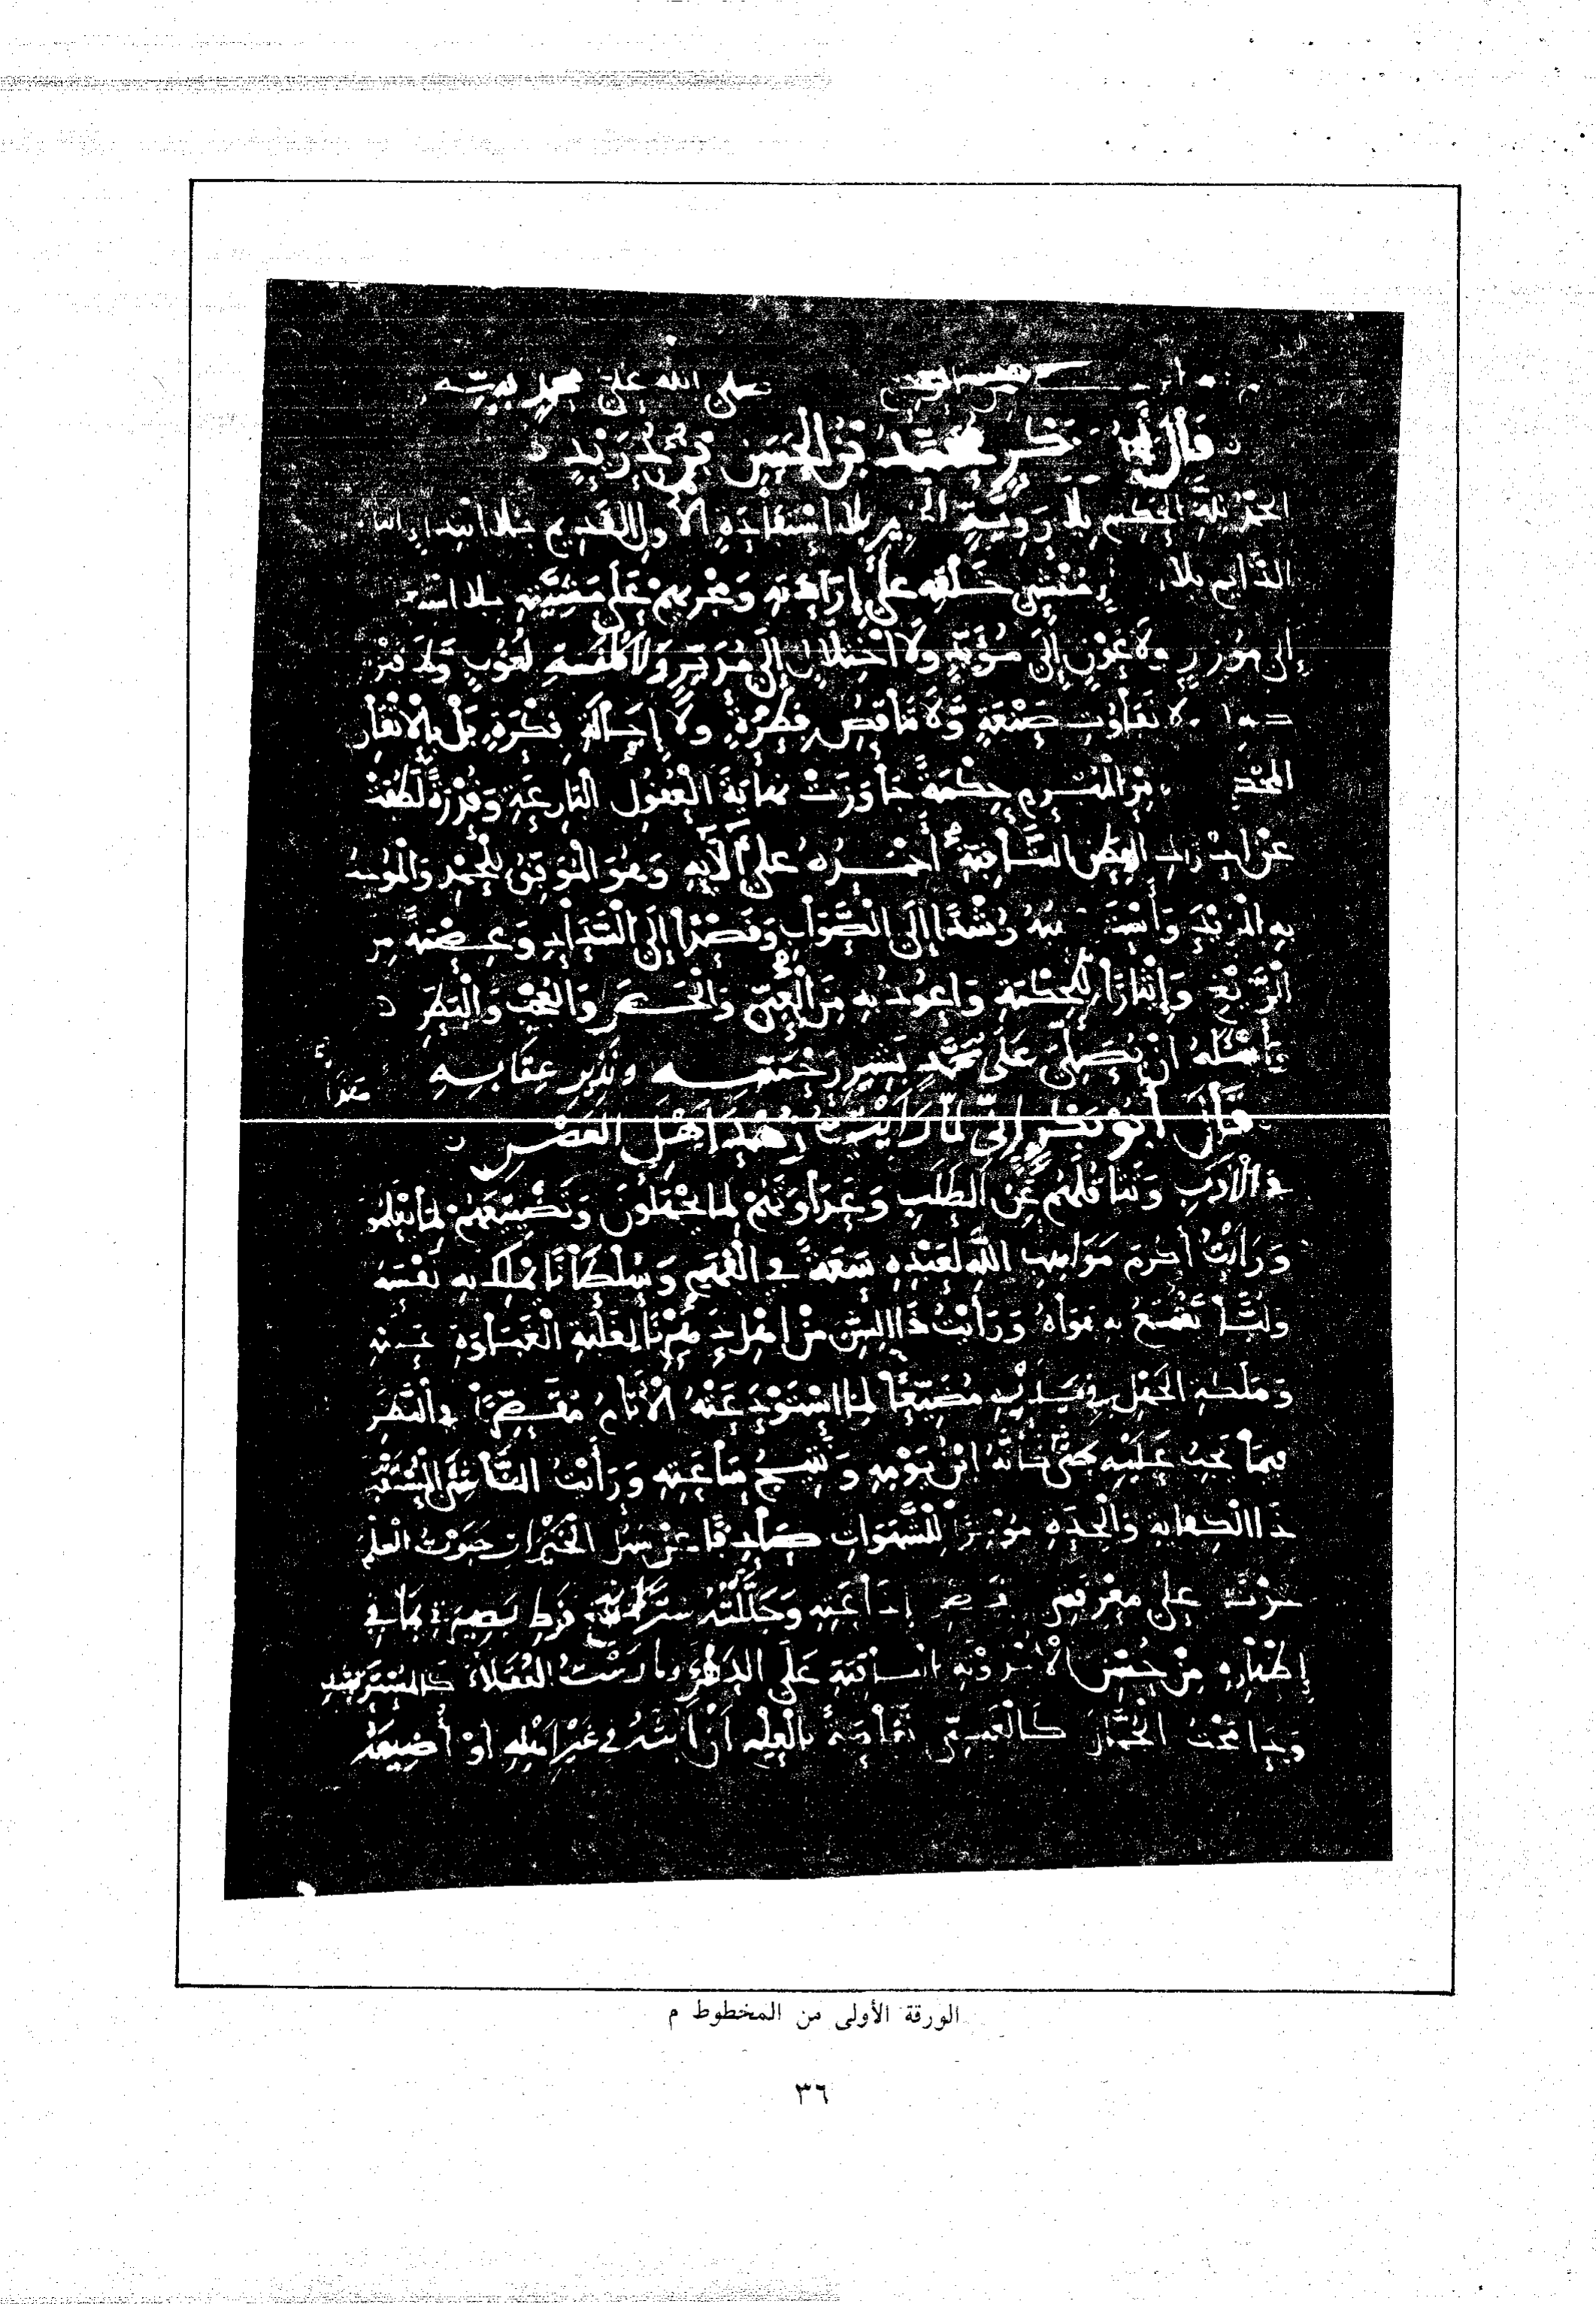 صلى الله على محمد نبيه
قال أبو بكر محمد بن الحسن بن دريد
الحمد لله الحكيم بلا روية الخبير بلا استفادة الأول القديم بلا ابتداء
الدايم بلا منشي خلقه على إرادته ومجريهم على مشيته بلا
إلى موزر ولا عون إلى مؤيد ولا اختلال إلى مدبر ولا كلفة لغوب ولا فترة
ولا تفاوت صنعة ولا تناقض فطرة ولا إجالة فكرة بل بالاتقان
المبرم حكمة جاوزت نهاية العقول البارعة وقدرة لطفت
عن الفطن الثاقبة أحمده على آلايه وهو الموفق للحمد والموجب
به المزيد رشدا إلى الصواب وقصدا إلى السداد وعصمة من
الزيغ وإيثارا للحكمة وأعوذ به من العي والحصر والعجب والبطر
وأسله أن يصلي على محمد بشير رحمته ونذير عقابه
قال أبو بكر إني لما رأيت زهد أهل العصر
في الأدب وتثاقلهم عن الطلب وعداوتهم لما يجهلون وتضييعهم لما يعلمون
ورأيت أكرم مواهب الله لعبده سعة في الفهم وسلطانا يملك به نفسه
ولبا يقمع به هواه ورأيت ذا السن من أهل دهرنا لغلبة الغباوة عليه
وملكة الجهل لقياده مضيعا لما استودعته الأيام مقصرا في النظر
فيما يجب عليه حتى كأنه ابن يومه ونتيج ساعته ورأيت الناشئ المستقبل
ذا الكفاية والجدة موثرا للشهوات صادفا عن سبل الخيرات حبوت العلم
خزنا على معرفتي إذاعته وجللته ستره مع فرط بصيرتي بما في
إظهاره من حسن الأحدوثة الباقية على الدهر العقلاء كالمسترشد
ودامجت الجهال كالغبي نفاسة بالعلم أن أبثه في غير أهله أو أضيعه
الورقة الأولى من المخطوط م
٣٦